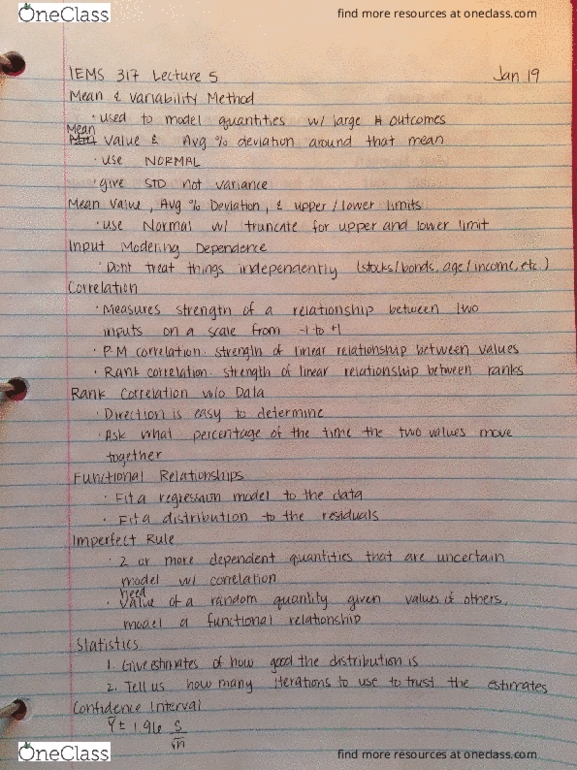 OneClass find more resources at oneclass.com
IEMS 317 Lecture 5 Jan 19
Mean & Variability Method
· used to model quantities w/ large # outcomes
Mean
value & Avg % deviation around that mean
· use NORMAL
· give STD not variance
Mean Value, Avg % Deviation, & upper/lower limits
· use Normal w/ truncate for upper and lower limit
Input Modering Dependence
· Dont treat things independently (stocks/bonds, age/income, etc.)
Correlation
· Measures strength of a relationship between two
inputs on a scale from -1 to +1
· P-M correlation: strength of linear relationship between values
· Rank correlation: strength of linear relationship between ranks
Rank Correlation w/o Data
· Direction is easy to determine
· Ask what percentage of the time the two values move
together
Functional Relationships
· Fit a regression model to the data
· Fit a distribution to the residuals
Imperfect Rule
· 2 or more dependent quantities that are uncertain
model w/ correlation
need
· Value of a random quantity given values of others,
model a functional relationship
Statistics
1. Give estimates of how good the distribution is
2. Tell us how many iterations to use to trust the estimates
Confidence Interval
Ȳ ± 1.96 S
√n
OneClass find more resources at oneclass.com